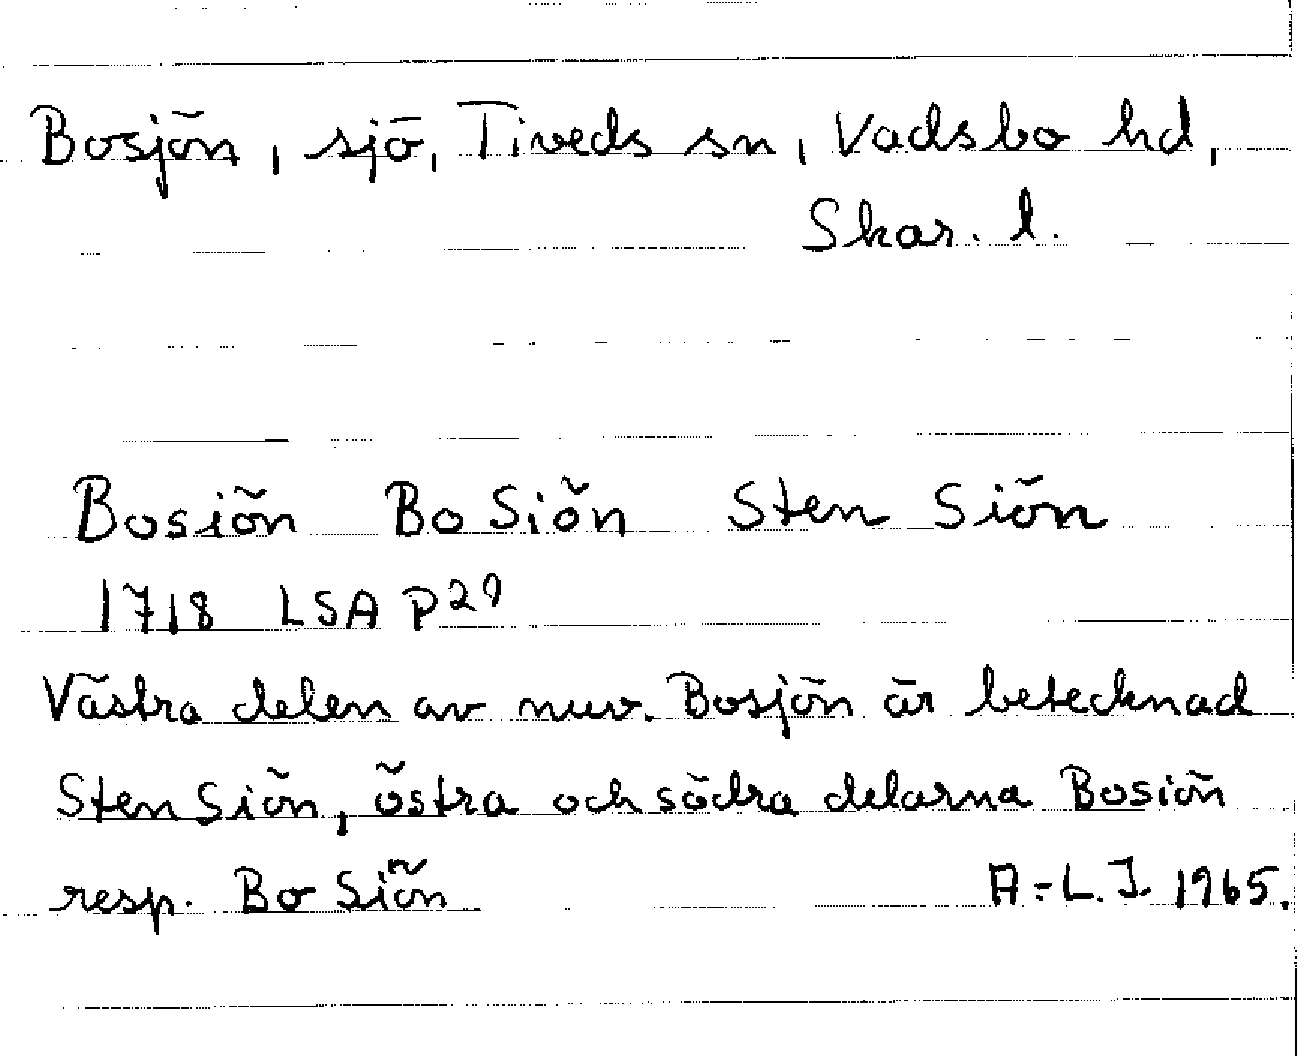 Bosjön, sjö, Tiveds sn, Vadsbo hd,
Skar. l.
Bosiön Bo Siön Sten Siön
1718 LSA P29
Västra delen av nuv. Bosjön är betecknad
Sten Siön, östra och södra delarna Bosiön
resp. Bo Siön A-L. J. 1965.